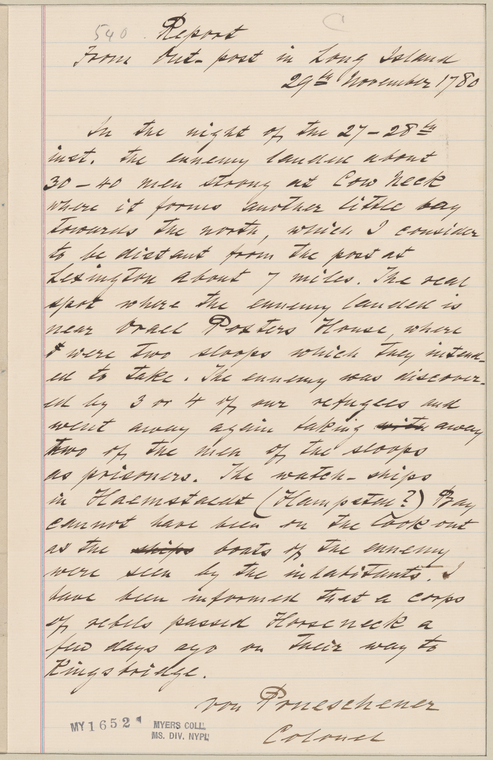 540 Report C
From Out-post in Long Island
29th November 1780
In the night of the 27-28th
inst. the ennemy landed about
30-40 men strong at Cow Neck
where it forms another little bay
towards the north, which I consider
to be distant from the post at
Lexington about 7 miles. The real
spot where the ennemy landed is
near Israel Posters House, where
were two sloops which they intend-
ed to take. The ennemy was discover-
ed by 3 or 4 of our refugees and
went away again taking with away
two of the men of the sloops
as prisoners. The watch-ships
in Haemstaedt (Hampsten?) Bay
cannot have been on the look out
as the ships boats of the ennemy
were seen by the inhabitants. I
have been informed that a corps
of rebels passed Horseneck a
few days ago on their way to
Kingsbridge.
von Prueschener
Colonel
MY 1652
MYERS COLL.
MS. DIV. NYPL